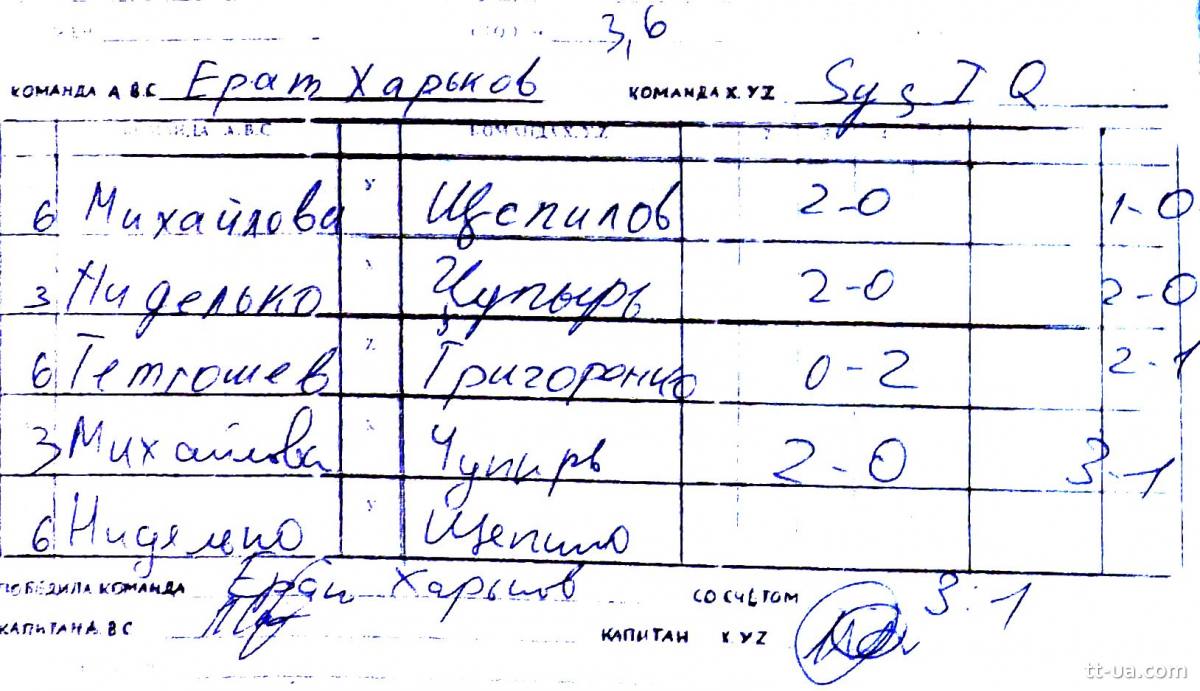 3,6
КОМАНДА А В.С Ерат Харьков КОМАНДА Х. УZ
КОМАНДА А.В.С КОМАНДА Х.У.Z
6 Михайлова У Щепилов 2-0 1-0
3 Ниделько Х Чупырь 2-0 2-0
6 Тетюшев Z Григоренко 0-2 2-1
3 Михайлова Х Чупирь 2-0 3-1
6 Ниделько У Щепило
ПОБЕДИЛА КОМАНДА Ерат Харьков СО СЧЕТОМ 3:1
КАПИТАН А. В С КАПИТАН Х.УZ
tt-ua.com